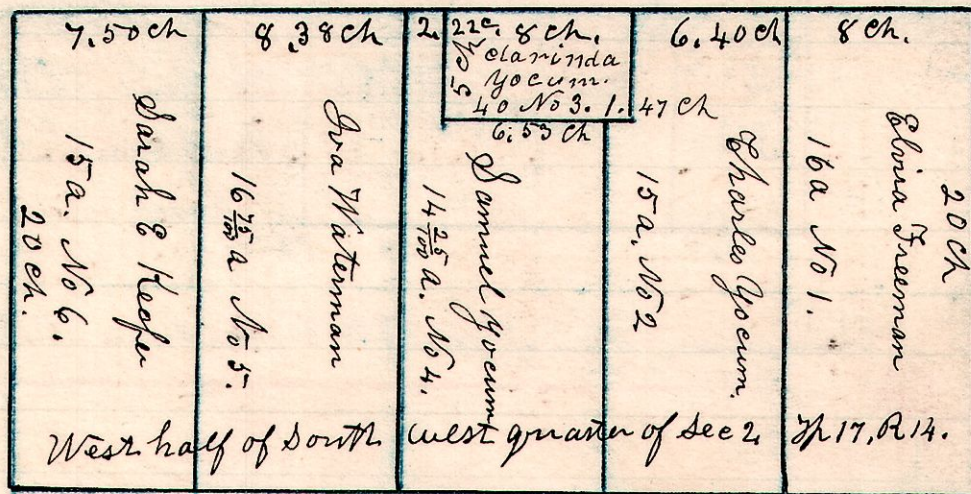 7.50 ch
Sarah E Keefer
15 a. No 6.
20 ch.
8.38 ch
Iva Waterman
16 75/100 a No 5.
2.22 c.
8 ch.
5 ch
Clarinda
Yocum.
40 No 3.
1.47 ch
6.53 ch
Samuel Yocum
14 25/100 a. No 4.
6.40 ch
Charles Yocum.
15 a. No 2
8 ch.
20 ch
Elvira Freeman
16 a No 1.
West half of South west quarter of Sec 2 Tp 17, R 14.